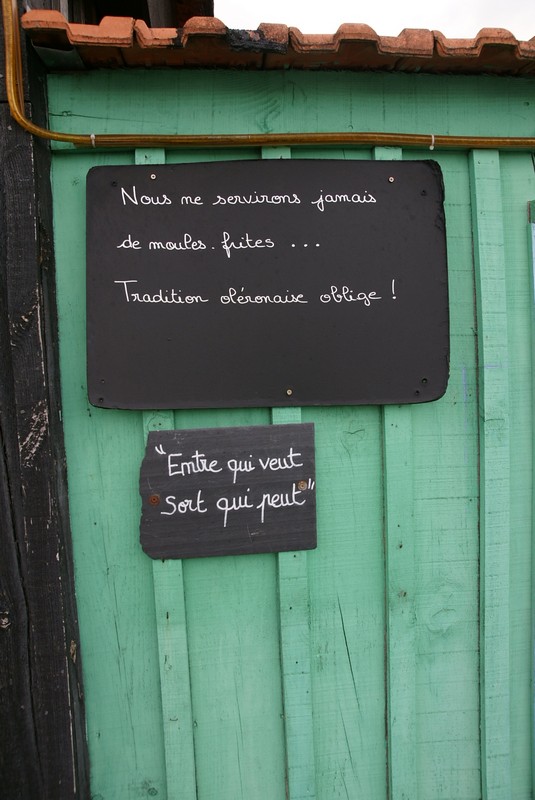 Nous ne servirons jamais
de moules.frites ...
Tradition oléronaise oblige !
"Entre qui veut
Sort qui peut"